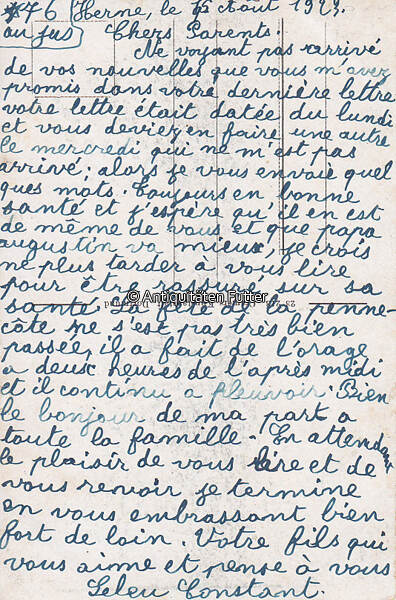 476 Herne, le 12 Août 1929.
au jus) Chers Parents.
Ne voyant pas arrivé
de vos nouvelles que vous m'avez
promis dans votre dernière lettre
votre lettre était datée du lundi
et vous deviez en faire une autre
le mercredi qui ne m'est pas
arrivé, alors je vous envoie quel
ques mots. Toujours en bonne
santé et j'espère qu'il en est
de même de vous et que papa
augustin va mieux je crois
ne plus tarder à vous lire
pour être sur sa
santé, La fête de la penne-
© Antiquitäten Fütter
côte ne s'est pas très bien
passée, il a fait de l'orage
a deux heures de l'après midi
et il continu a pleuvoir. Bien
le bonjour de ma part a
toute la famille. En attendant
le plaisir de vous lire et de
vous revoir je termine
en vous embrassant bien
fort de loin. Votre fils qui
vous aime et pense à vous
Leleu Constant.